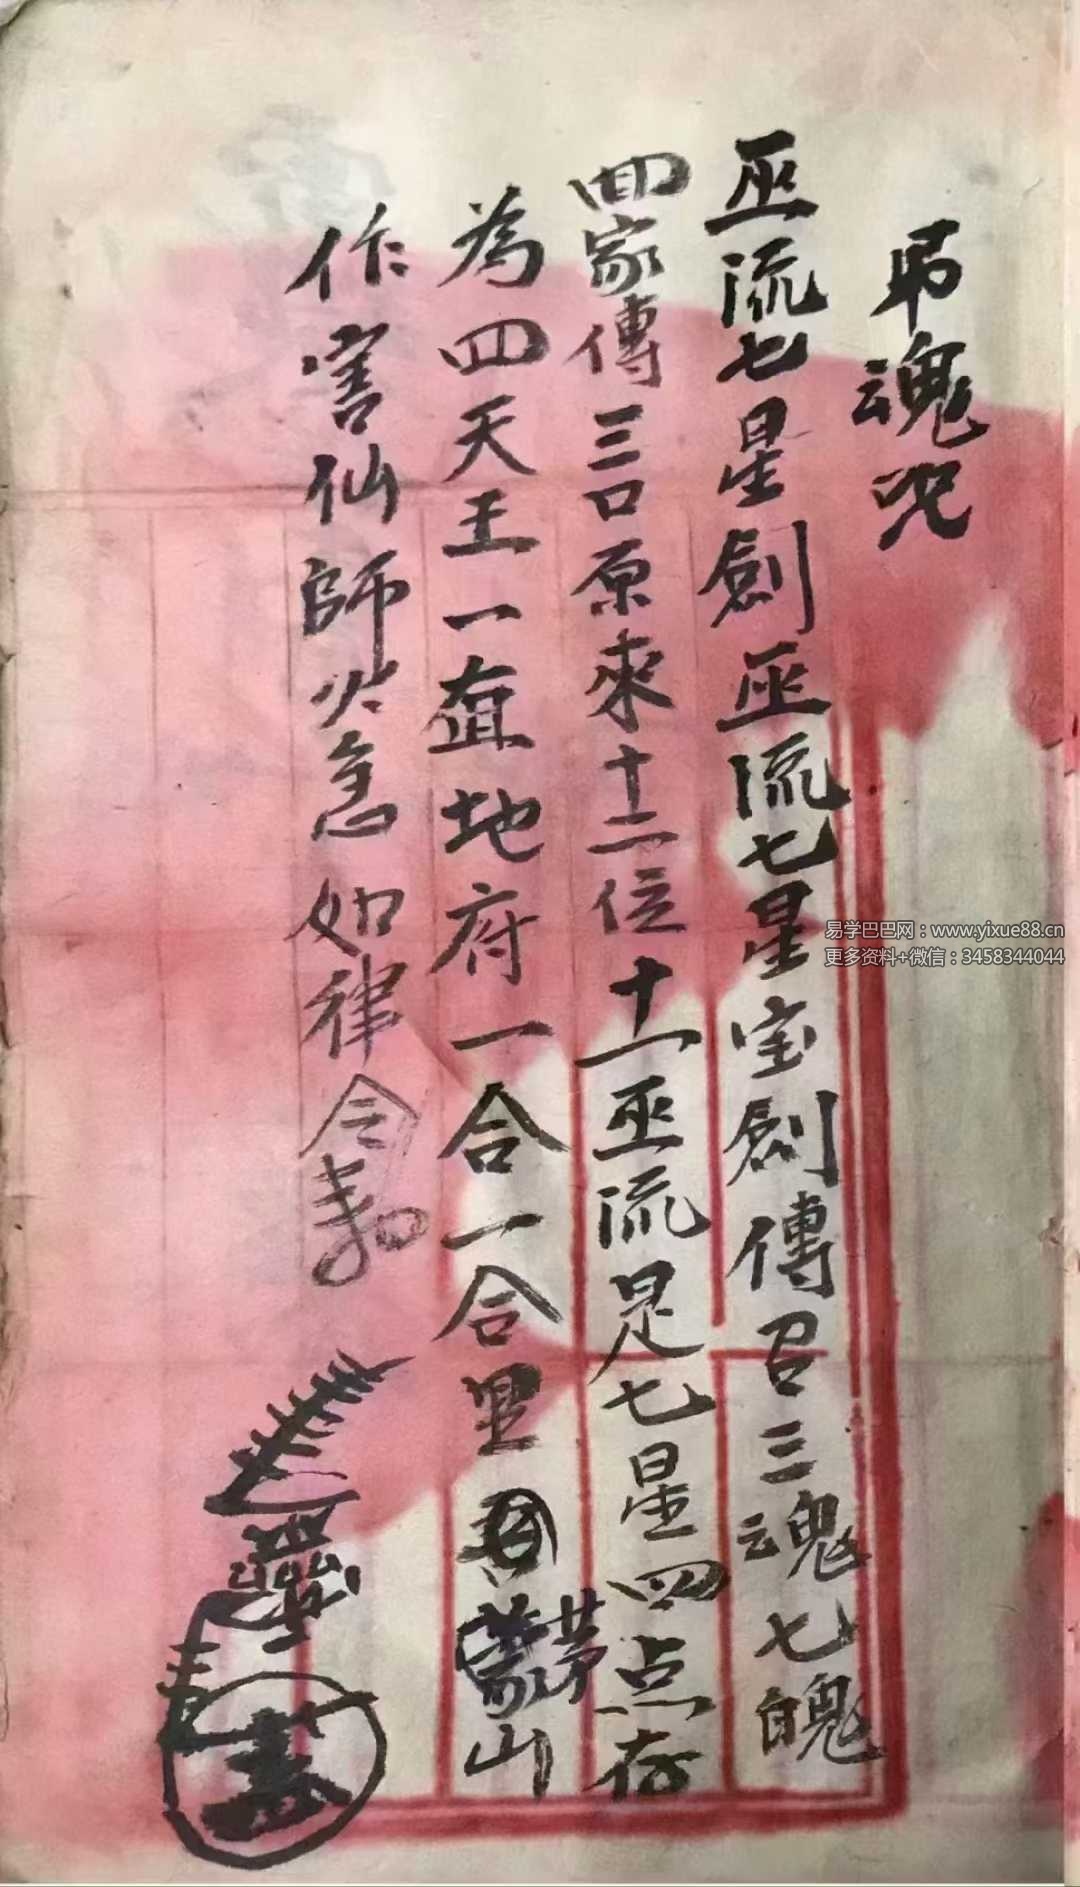 吊魂咒
巫流七星劍巫流七星宝劍傳召三魂七魄
四家傳三口原來十二位十一巫流是七星四点存
為四天王一盍地府一合一合里茅山
作害仙師火急如律令
易学巴巴网：www.yixue88.cn
更多资料+微信：3458344044